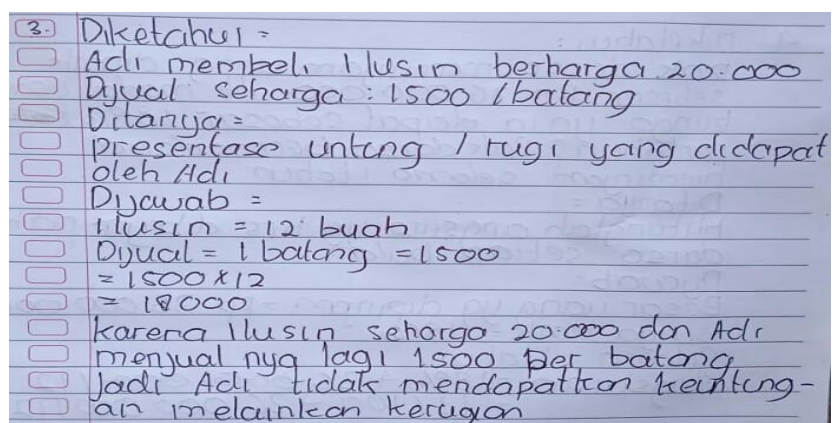 3. Diketahui =
Adi membeli 1 lusin berharga 20.000
Dijual seharga : 1500 / batang
Ditanya =
Presentase untung / rugi yang didapat
oleh Adi
Dijawab =
1 lusin = 12 buah
Dijual = 1 batang = 1500
= 1500 x 12
= 18000
karena 1 lusin seharga 20.000 dan Adi
menjual nya lagi 1500 per batang
Jadi Adi tidak mendapatkan keuntung-
an melainkan kerugan